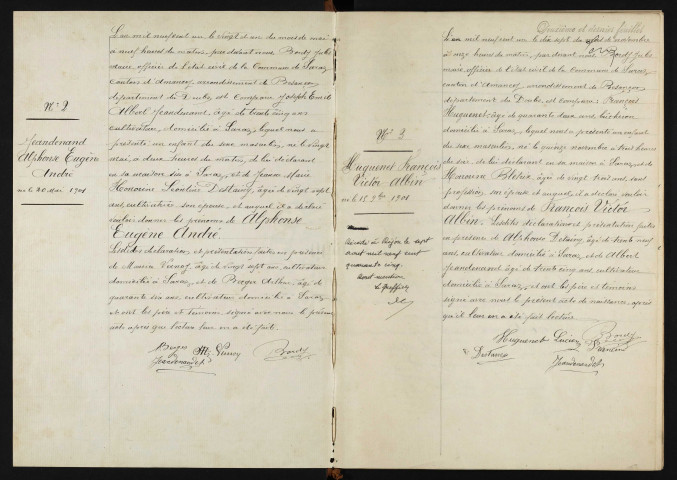 N° 2
Jeandenand
Alphonse Eugène
André
né le 20 Mai 1901
L'an mil neuf cent un le vingt et un du mois de mai
à neuf heures du matin, par devant nous Bordy Jules
maire officier de l'état civil de la Commune de Saraz,
canton d'Amancey, arrondissement de Besançon,
département du Doubs, est comparu Joseph Ernest
Albert Jeandenand, âgé de trente cinq ans
cultivateur, domicilié à Saraz, lequel nous a
présenté un enfant du sexe masculin, né le vingt
mai à deux heures du matin, de lui déclarant
en sa maison sis à Saraz, et de Jeanne Marie
âgée de vingt sept
ans, cultivatrice son épouse, et auquel il a déclaré
vouloir donner les prénoms de Alphonse
Eugène André.
Lesdites déclaration et présentation faites en présence
de âgé de vingt sept ans, cultivateur
domicilié à Saraz, et de âgé de
quarante six ans, cultivateur domicilié à Saraz,
et ont les père et témoins signé avec nous le présent
acte après que lecture leur en a été faite.
Bordy
Deuxième et dernier feuillet
N° 3
Huguenet François
Victor Albin
né le 15 9bre 1901
L'an mil neuf cent un le dix sept du mois de novembre
à onze heures du matin, par devant nous Bordy Jules
maire officier de l'état civil de la Commune de Saraz,
canton d'Amancey, arrondissement de Besançon,
département du Doubs, est comparu François
Huguenet, âgé de quarante deux ans, bûcheron
domicilié à Saraz, lequel nous a présenté un enfant
du sexe masculin, né le quinze novembre à trois heures
du soir, de lui déclarant en sa maison à Saraz, et de
âgée de vingt trois ans, sans
profession, son épouse et auquel il a déclaré vouloir
donner les prénoms de François Victor
Albin. Lesdites déclaration et présentation faites
en présence de Alphonse âgé de trente neuf
ans, cultivateur domicilié à Saraz, et de Albert
Jeandenand âgé de trente cinq ans, cultivateur
domicilié à Saraz, et ont les père et témoins
signé avec nous le présent acte de naissance, après
qu'il leur en a été fait lecture.
Décédé à Dijon le sept
août mil neuf cent
quarante cinq
Dont mention
Le Greffier
Huguenet Bordy